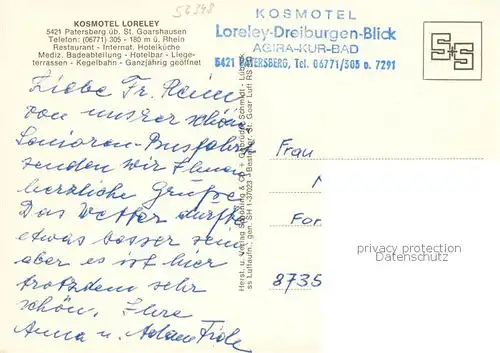 52348
KOSMOTEL LORELEY
5421 Patersberg üb. St. Goarshausen
Telefon: (06771) 305 - 180 m ü. Rhein
Restaurant - Internat. Hotelküche
Mediz. Badeabteilung - Hotelbar - Liege-
terrassen - Kegelbahn - Ganzjährig geöffnet
KOSMOTEL
Loreley-Dreiburgen-Blick
AGIRA-KUR-BAD
5421 PATERSBERG, Tel. 06771/305 o. 7291
S+S
Liebe Fr.
von unserer schönen
Senioren-Busfahrt
senden wir Ihnen
herzliche Grüße
Das Wetter dürfte
etwas besser sein
aber es ist hier
trotzdem sehr
schön. Ihre
Anna u. Adam
Herst. u. Verlag Schöning & Co. + Gebrüder Schmidt - Lübeck
ss Luftaufn., gen. SH 1-37023 - Bestellnr. St. Goar Luft RS
Frau
For
8735
privacy protection
Datenschutz